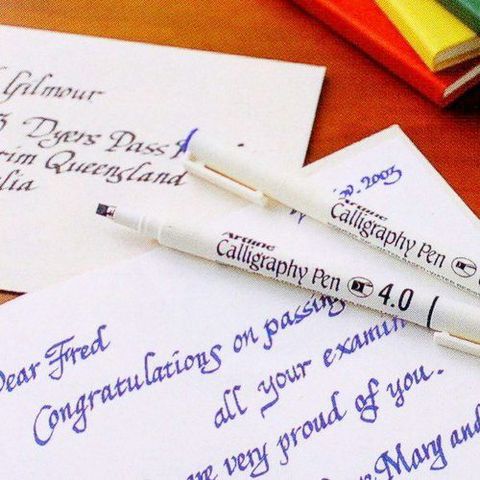 Gilmour
Dyers Pass
rim Queengland
lia
2003
Artline
Calligraphy Pen
Artline
Calligraphy Pen 4.0
Dear Fred
Congratulations on passing
all your examin
are very proud of you.
Mary and